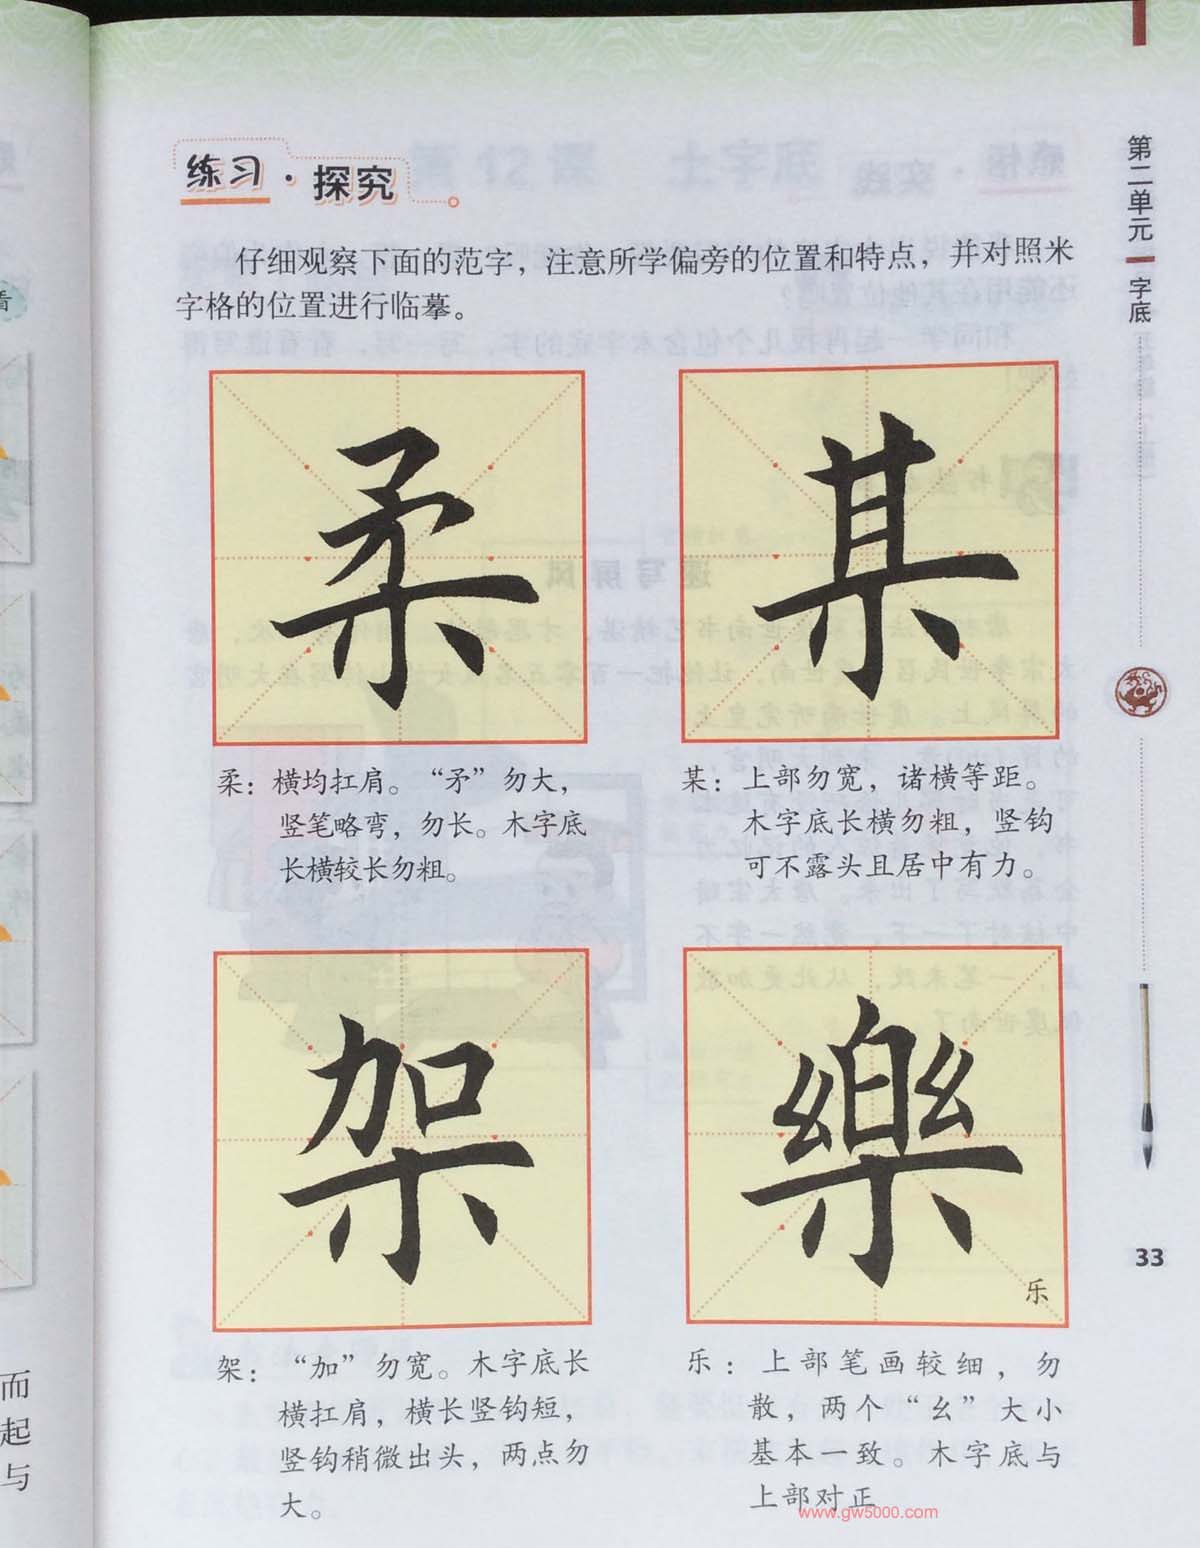 练习·探究
仔细观察下面的范字，注意所学偏旁的位置和特点，并对照米
字格的位置进行临摹。
柔
某
柔：横均扛肩。“矛”勿大，
竖笔略弯，勿长。木字底
长横较长勿粗。
某：上部勿宽，诸横等距。
木字底长横勿粗，竖钩
可不露头且居中有力。
架
樂
乐
架：“加”勿宽。木字底长
横扛肩，横长竖钩短，
竖钩稍微出头，两点勿
大。
乐：上部笔画较细，勿
散，两个“幺”大小
基本一致。木字底与
上部对正
www.gw5000.com
第二单元 字底
33
而
起
与